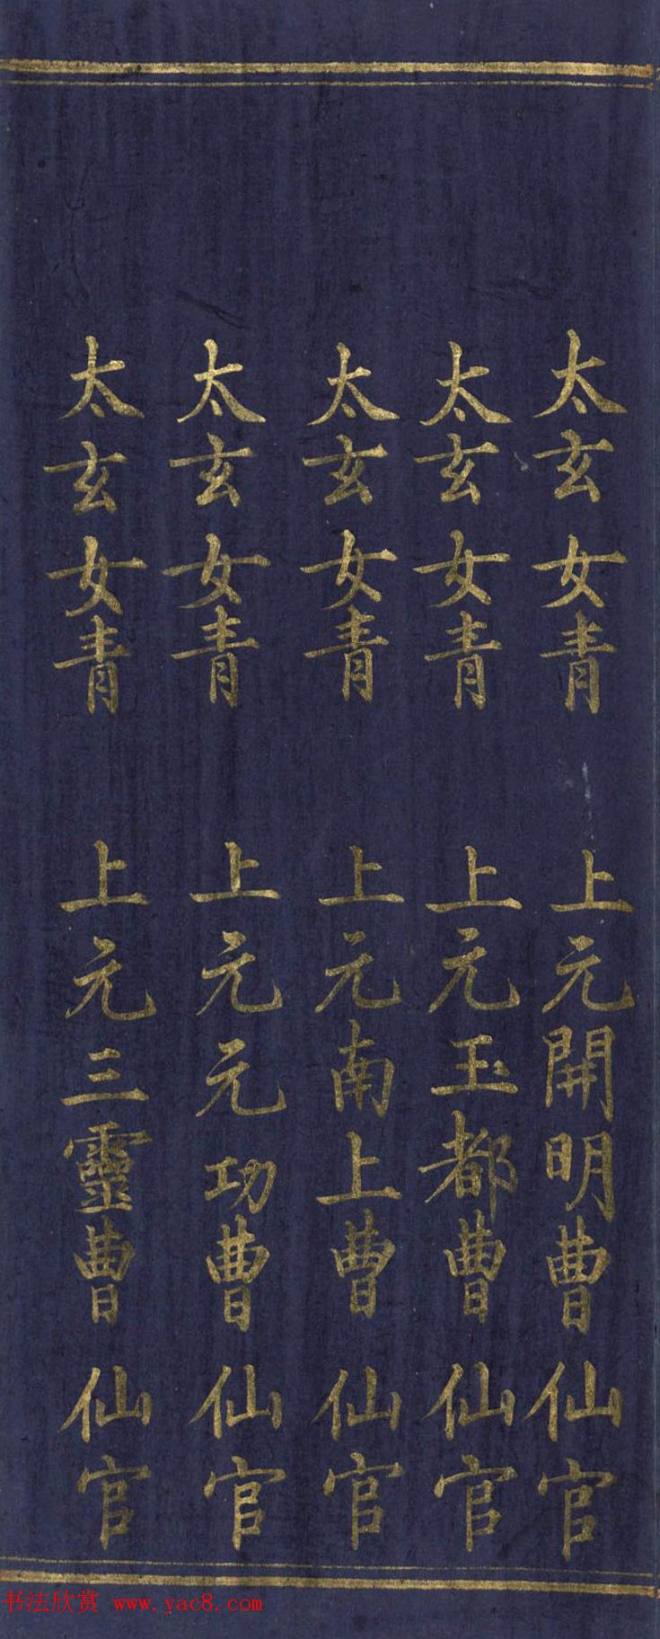 太玄女青 上元開明曹仙官
太玄女青 上元玉都曹仙官
太玄女青 上元南上曹仙官
太玄女青 上元元功曹仙官
太玄女青 上元三靈曹仙官
书法欣赏 www.yac8.com